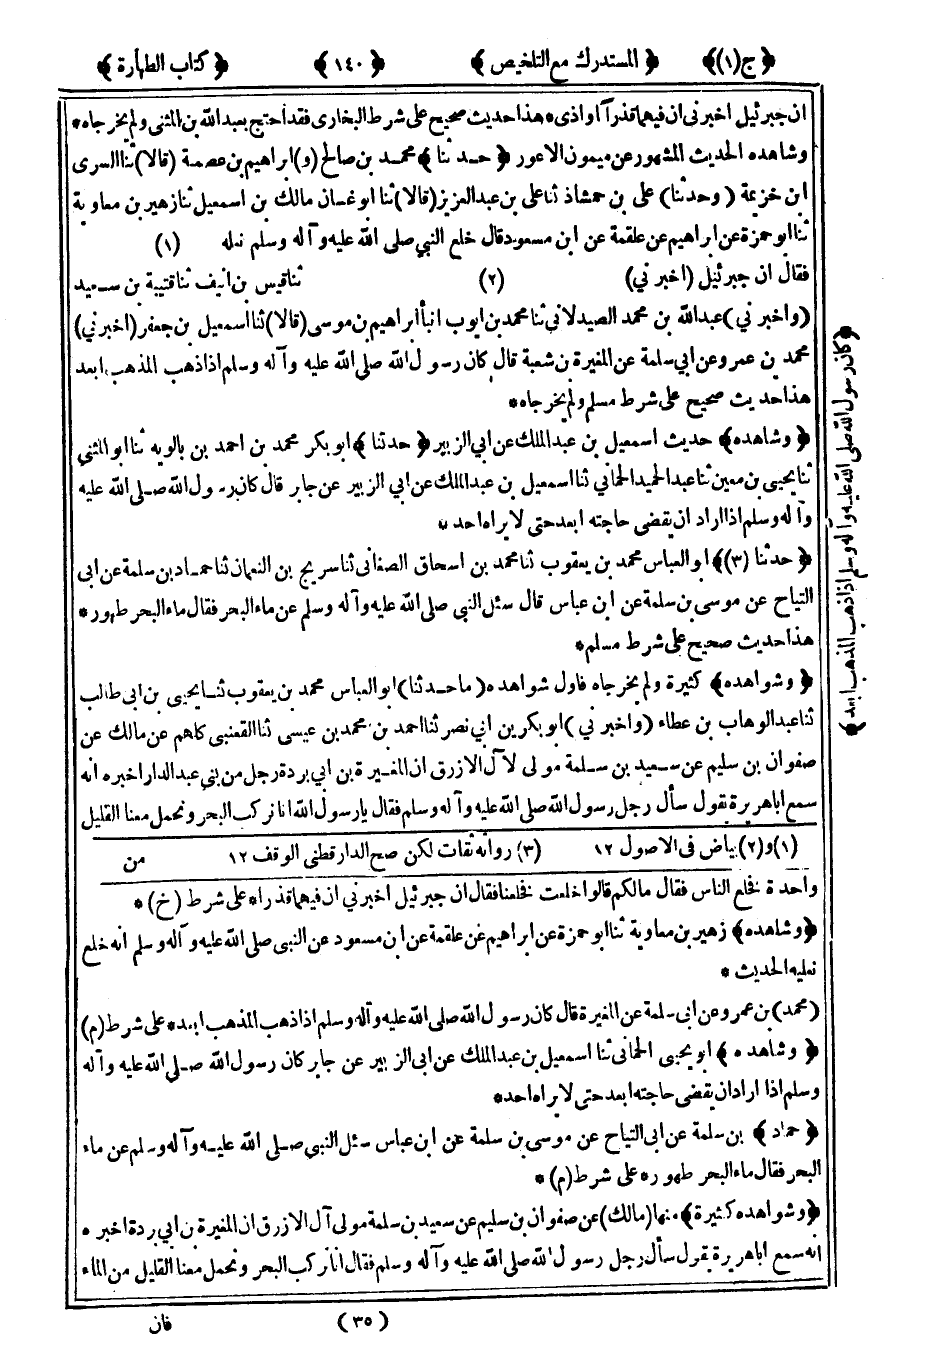 ﴿ ج(١)﴾ ﴿ المستدرك مع التلخيص ﴾ ﴿ ١٤٠ ﴾ ﴿ كتاب الطهارة ﴾
ان جبرئيل اخبرني ان فيهما قذرا او اذى * هذا حديث صحيح على شرط البخارى فقد احتج بعبد الله بن المثنى ولم يخرجاه *
وشاهده الحديث المشهور عن ميمون الاعور ﴿ حدثنا ﴾ محمد بن صالح (و) ابراهيم بن عصمة (قالا) ثنا السرى
ابن خزيمة ( وحدثنا ) على بن حمشاذ ثنا على بن عبد العزيز (قالا) ثنا ابو غسان مالك بن اسمعيل ثنا زهير بن معاوية
ثنا ابو حمزة عن ابراهيم عن علقمة عن ابن مسعود قال خلع النبي صلى الله عليه وآله وسلم نعله (١)
فقال ان جبرئيل (اخبرني) (٢) ثنا قيس بن انيف ثنا قتيبة بن سعيد
(واخبرني) عبد الله بن محمد الصيدلاني ثنا محمد بن ايوب انبأ ابراهيم بن موسى (قالا) ثنا اسمعيل بن جعفر (اخبرني)
محمد بن عمرو عن ابي سلمة عن المغيرة بن شعبة قال كان رسول الله صلى الله عليه وآله وسلم اذا ذهب المذهب ابعد
هذا حديث صحيح على شرط مسلم ولم يخرجاه *
﴿ وشاهده ﴾ حديث اسمعيل بن عبد الملك عن ابي الزبير ﴿ حدثنا ﴾ ابو بكر محمد بن احمد بن بالويه ثنا ابو المثنى
ثنا يحيى بن معين ثنا عبد الحميد الحماني ثنا اسمعيل بن عبد الملك عن ابي الزبير عن جابر قال كان رسول الله صلى الله عليه
وآله وسلم اذا اراد ان يقضى حاجته ابعد حتى لا يراه احد *
﴿ حدثنا (٣)﴾ ابو العباس محمد بن يعقوب ثنا محمد بن اسحاق الصغانى ثنا سريج بن النعمان ثنا حماد بن سلمة عن ابى
التياح عن موسى بن سلمة عن ابن عباس قال سئل النبي صلى الله عليه وآله وسلم عن ماء البحر فقال ماء البحر طهور *
هذا حديث صحيح على شرط مسلم *
﴿ وشواهده ﴾ كثيرة ولم يخرجاه فاول شواهده ( ما حدثنا ) ابو العباس محمد بن يعقوب ثنا يحيى بن ابى طالب
ثنا عبد الوهاب بن عطاء (واخبرني) ابو بكر بن ابي نصر ثنا احمد بن محمد بن عيسى ثنا القعنبى كلهم عن مالك عن
صفوان بن سليم عن سعيد بن سلمة مولى لآل الازرق ان المغيرة بن ابي بردة رجل من بني عبد الدار اخبره انه
سمع ابا هريرة يقول سأل رجل رسول الله صلى الله عليه وآله وسلم فقال يا رسول الله انا نركب البحر ونحمل معنا القليل
من
(١) و(٢) بياض فى الاصول ١٢ (٣) رواته ثقات لكن صح الدارقطنى الوقف ١٢
واحدة فخلع الناس فقال مالكم قالوا خلعت فخلعنا فقال ان جبرئيل اخبرني ان فيهما قذرا * على شرط (خ) *
﴿وشاهده﴾ زهير بن معاوية ثنا ابو حمزة عن ابراهيم عن علقمة عن ابن مسعود عن النبى صلى الله عليه وآله وسلم انه خلع
نعليه الحديث *
(محمد) بن عمرو عن ابى سلمة عن المغيرة قال كان رسول الله صلى الله عليه وآله وسلم اذا ذهب المذهب ابعد * على شرط (م)
﴿ وشاهده ﴾ ابو يحيى الحمانى ثنا اسمعيل بن عبد الملك عن ابى الزبير عن جابر كان رسول الله صلى الله عليه وآله
وسلم اذا اراد ان يقضى حاجته ابعد حتى لا يراه احد *
﴿ حماد ﴾ بن سلمة عن ابى التياح عن موسى بن سلمة عن ابن عباس سئل النبي صلى الله عليه وآله وسلم عن ماء
البحر فقال ماء البحر طهور * على شرط (م) *
﴿ وشواهده كثيرة ﴾ منها (مالك) عن صفوان بن سليم عن سعيد بن سلمة مولى آل الازرق ان المغيرة بن ابي بردة اخبره
انه سمع ابا هريرة يقول سأل رجل رسول الله صلى الله عليه وآله وسلم فقال انا نركب البحر ونحمل معنا القليل من الماء
(٣٥) فان
﴿ كان رسول الله صلى الله عليه وآله وسلم اذا ذهب المذهب ابعد ﴾